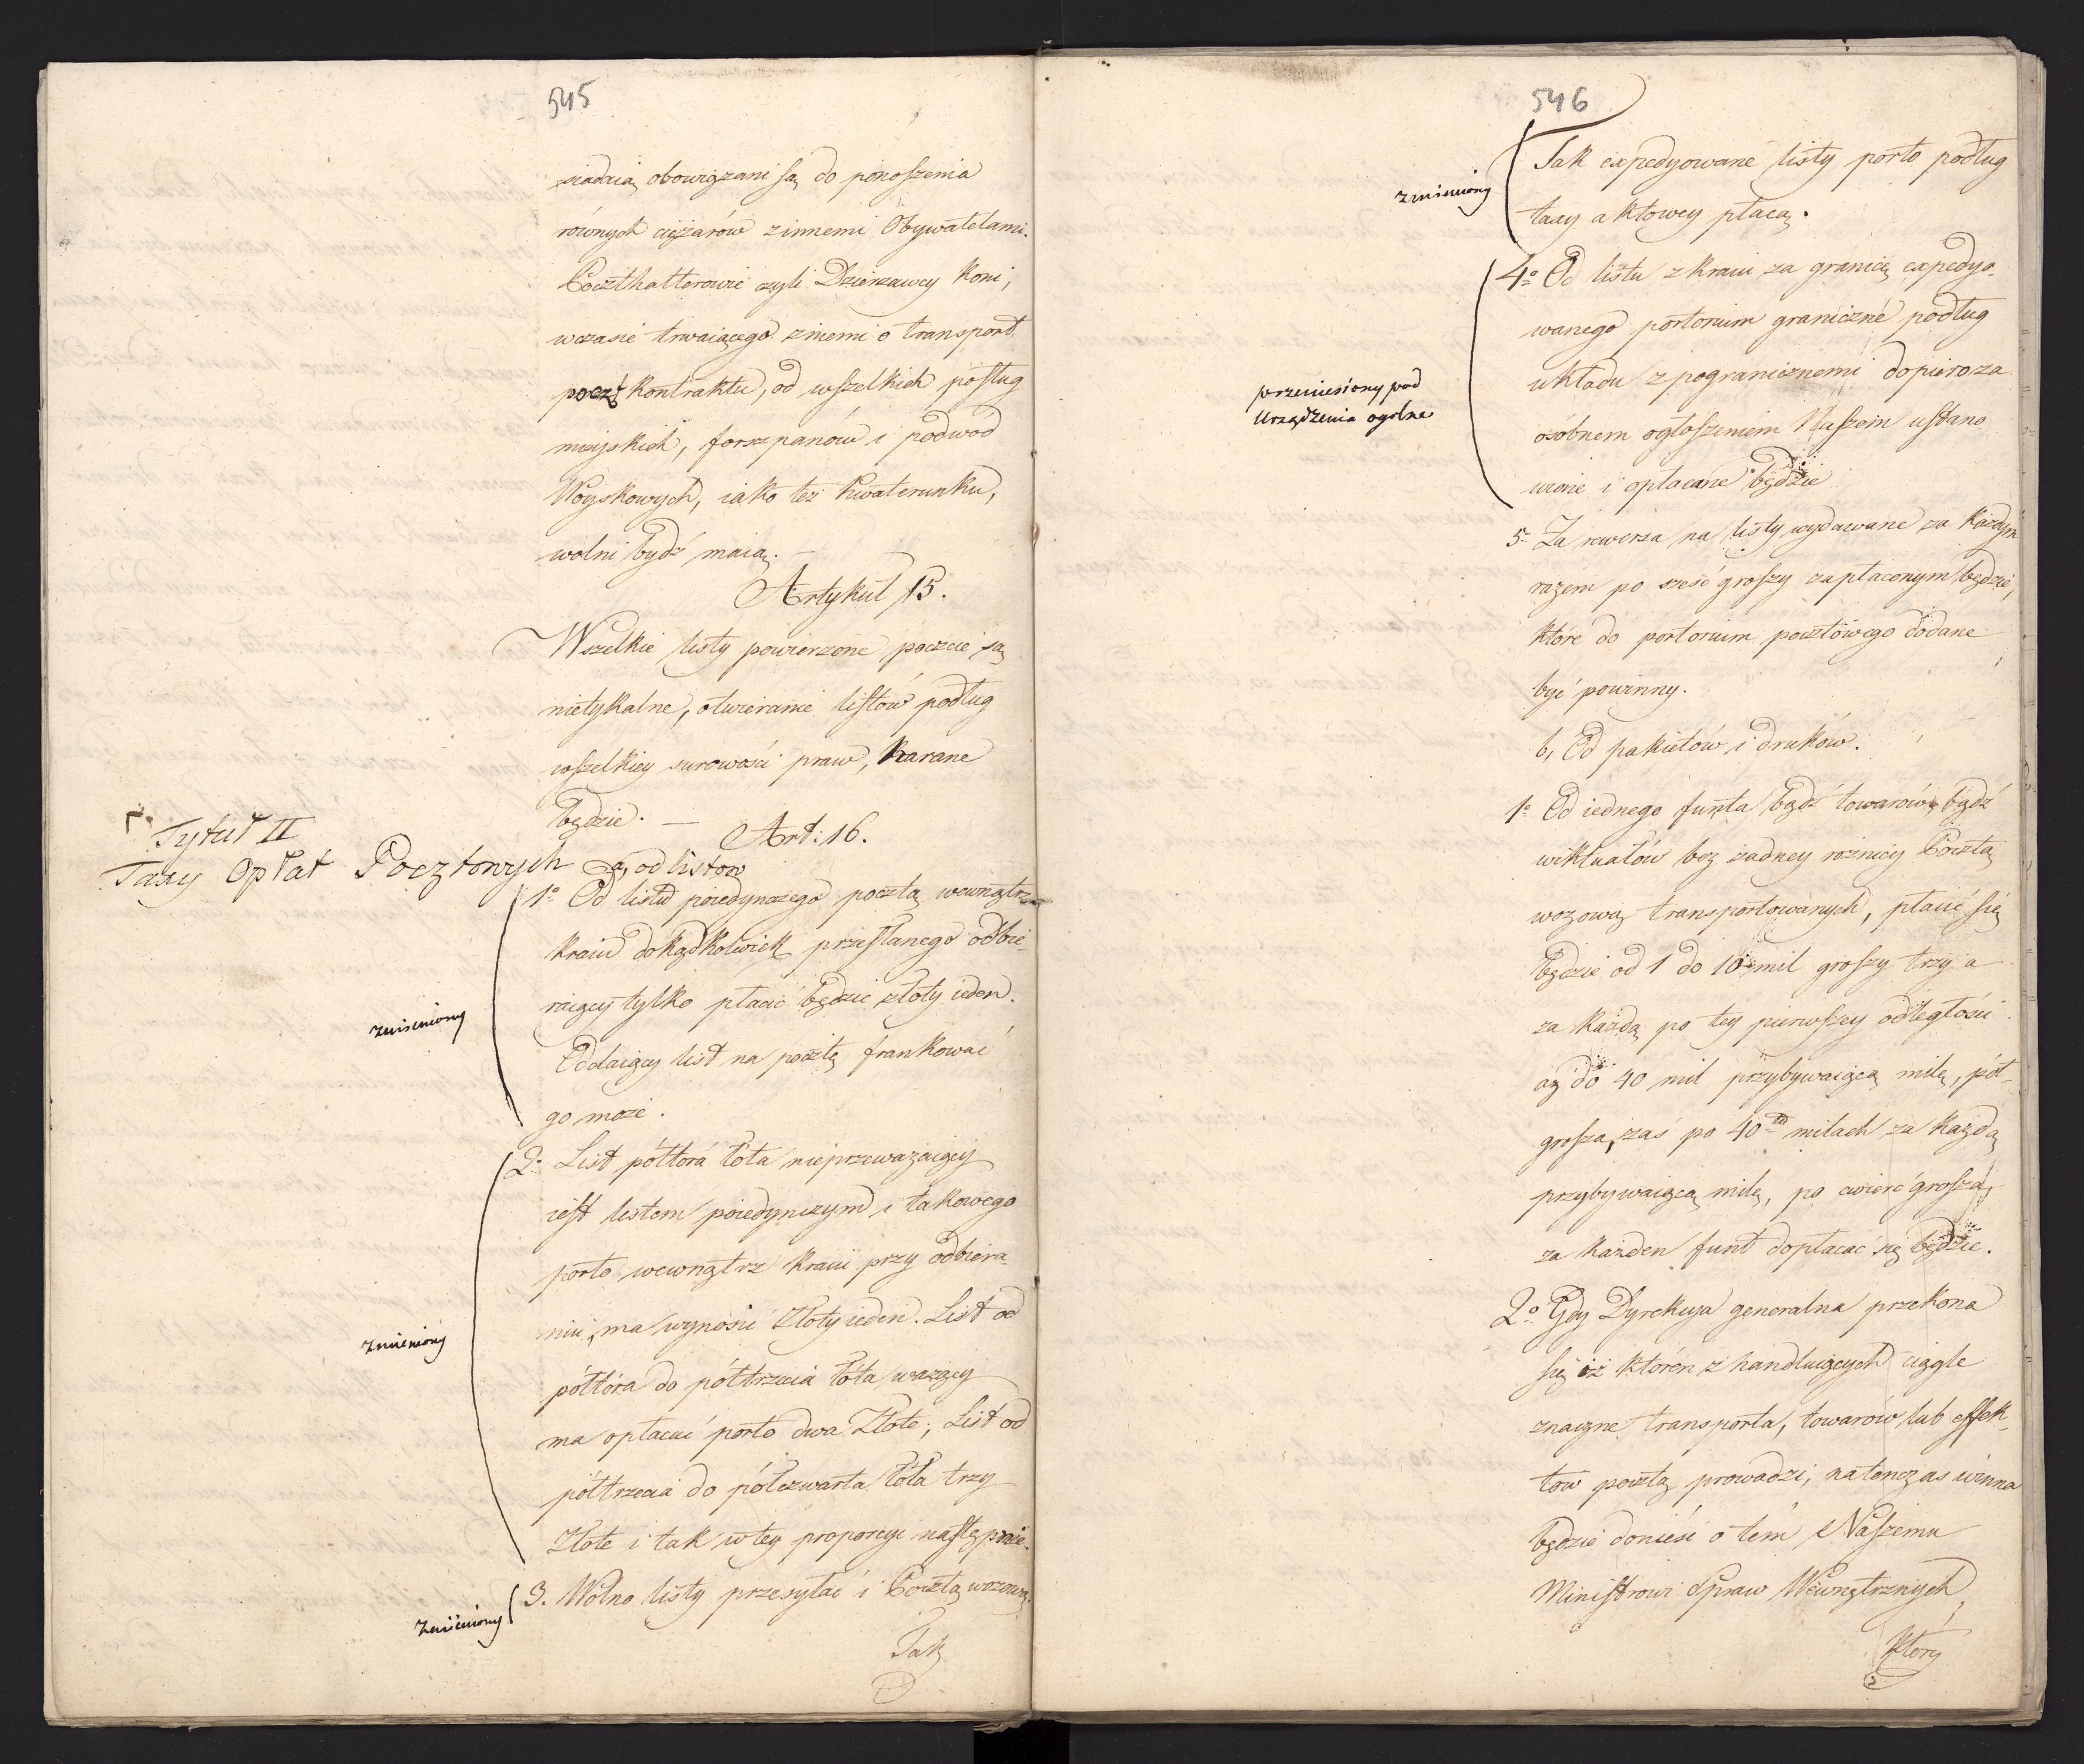 545
siadaią obowiązani są do ponoszenia
równych ciężarów z innemi Obywatelami.
Poczthalterowie czyli Dzierzawcy koni,
wczasie trwaiącego z niemi o transport
poczt kontraktu, od wszelkich posług
mieyskich, forszpanów i podwód
Woyskowych, iako też kwaterunku,
wolni bydź maią. —
Artykuł 15.
Wszelkie listy powierzone poczcie są
nietykalne, otwieranie listów podług
wszelkiey surowości praw, karane
będzie. —
Art: 16.
Tytuł II
Taxy Opłat Pocztowych
a, od listów
1o Od listu poiedynczego pocztą wewnątrz
kraiu dokądkolwiek przesłanego odbie-
raiący tylko płacić będzie złoty ieden.
Oddaiący list na pocztę frankować
go może.
zmieniony
2. List półtora łóta nieprzeważaiący
iest listem poiedynczym i takowego
porto wewnątrz kraiu przy odbiera-
niu, ma wynosić Złoty ieden. List od
półtora do półtrzecia łóta ważący
ma opłacać porto dwa Złote; List od
półtrzecia do półczwarta łóta trzy
Złote i tak w tey proporcyi następnie.
zmieniony
3. Wolno listy przesyłać i Pocztą wozową.
zmieniony
Tak
546
Tak expedyowane listy porto podług
taxy aktowey płacą.
zmieniony
4o Od listu z kraiu za granicę expedyo-
wanego portorium graniczne podług
układu z pogranicznemi dopiero za
osobnem ogłoszeniem Naszem ustano
wione i opłacane będzie
przeniesiony pod
Urządzenia ogolne
5o Za rewersa na listy wydawane za każdym
razem po sześć groszy zapłaconym będzie,
które do portorium pocztowego dodane
być powinny.
b, Od pakietów i druków.
1o Od iednego funta bądź towarów, bądź
wiktuałów bez żadney rożnicy Pocztą
wozową transportowanych, płacić się
będzie od 1 do 10 mil groszy trzy a
za każdą po tey pierwszey odległości
aż do 40 mil przybywaiącą milę, pół-
grosza, zaś po 40tu milach za każdą
przybywaiącą milę, po cwierć grosza,
za każden funt dopłacać się będzie.
2o Gdy Dyrekcya generalna przekona
się iż któren z handluiących ciągle
znaczne transporta, towarów lub effek-
tów pocztą prowadzi, natenczas winna
będzie donieść o tem Naszemu
Ministrowi Spraw Wewnątrznych,
który